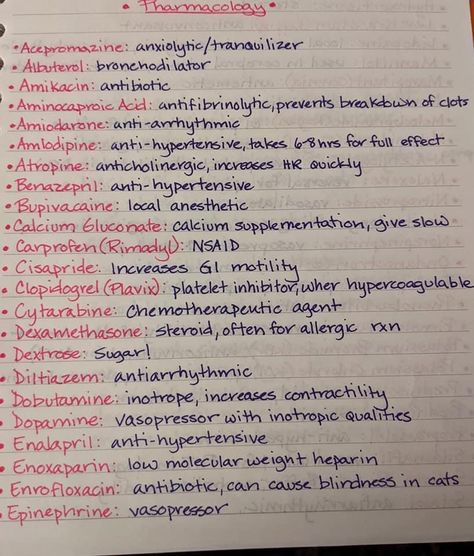 • Pharmacology •
• Acepromazine: anxiolytic/tranquilizer
• Albuterol: bronchodilator
• Amikacin: antibiotic
• Aminocaproic Acid: antifibrinolytic, prevents breakdown of clots
• Amiodarone: anti-arrhythmic
• Amlodipine: anti-hypertensive, takes 6-8 hrs for full effect
• Atropine: anticholinergic, increases HR quickly
• Benazepril: anti-hypertensive
• Bupivacaine: local anesthetic
• Calcium Gluconate: calcium supplementation, give slow
• Carprofen (Rimadyl): NSAID
• Cisapride: Increases GI motility
• Clopidogrel (Plavix): platelet inhibitor, when hypercoagulable
• Cytarabine: Chemotherapeutic agent
• Dexamethasone: steroid, often for allergic rxn
• Dextrose: Sugar!
• Diltiazem: antiarrhythmic
• Dobutamine: inotrope, increases contractility
• Dopamine: vasopressor with inotropic qualities
• Enalapril: anti-hypertensive
• Enoxaparin: low molecular weight heparin
• Enrofloxacin: antibiotic, can cause blindness in cats
• Epinephrine: vasopressor